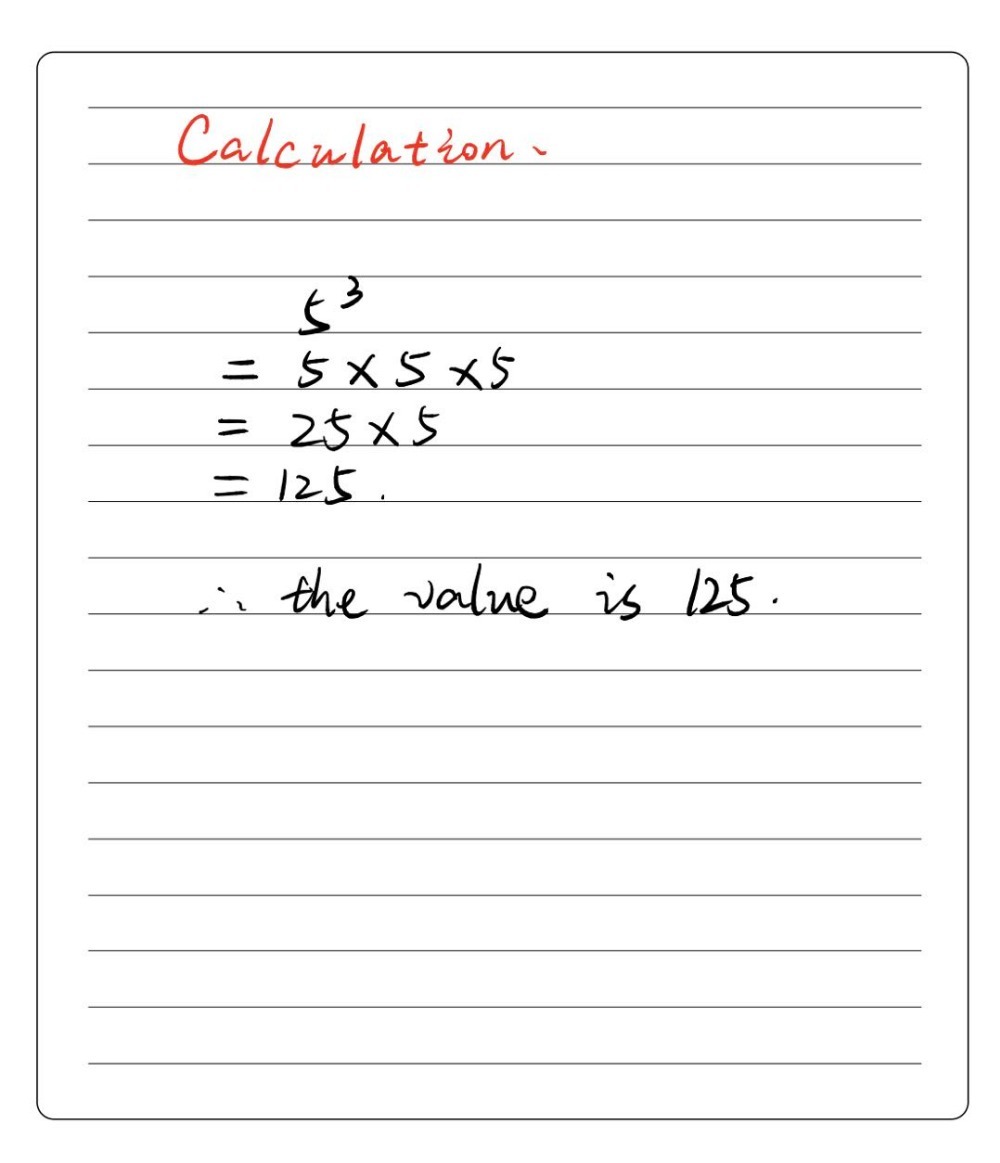 Calculation、
5³
= 5 × 5 × 5
= 25 × 5
= 125.
∴ the value is 125.